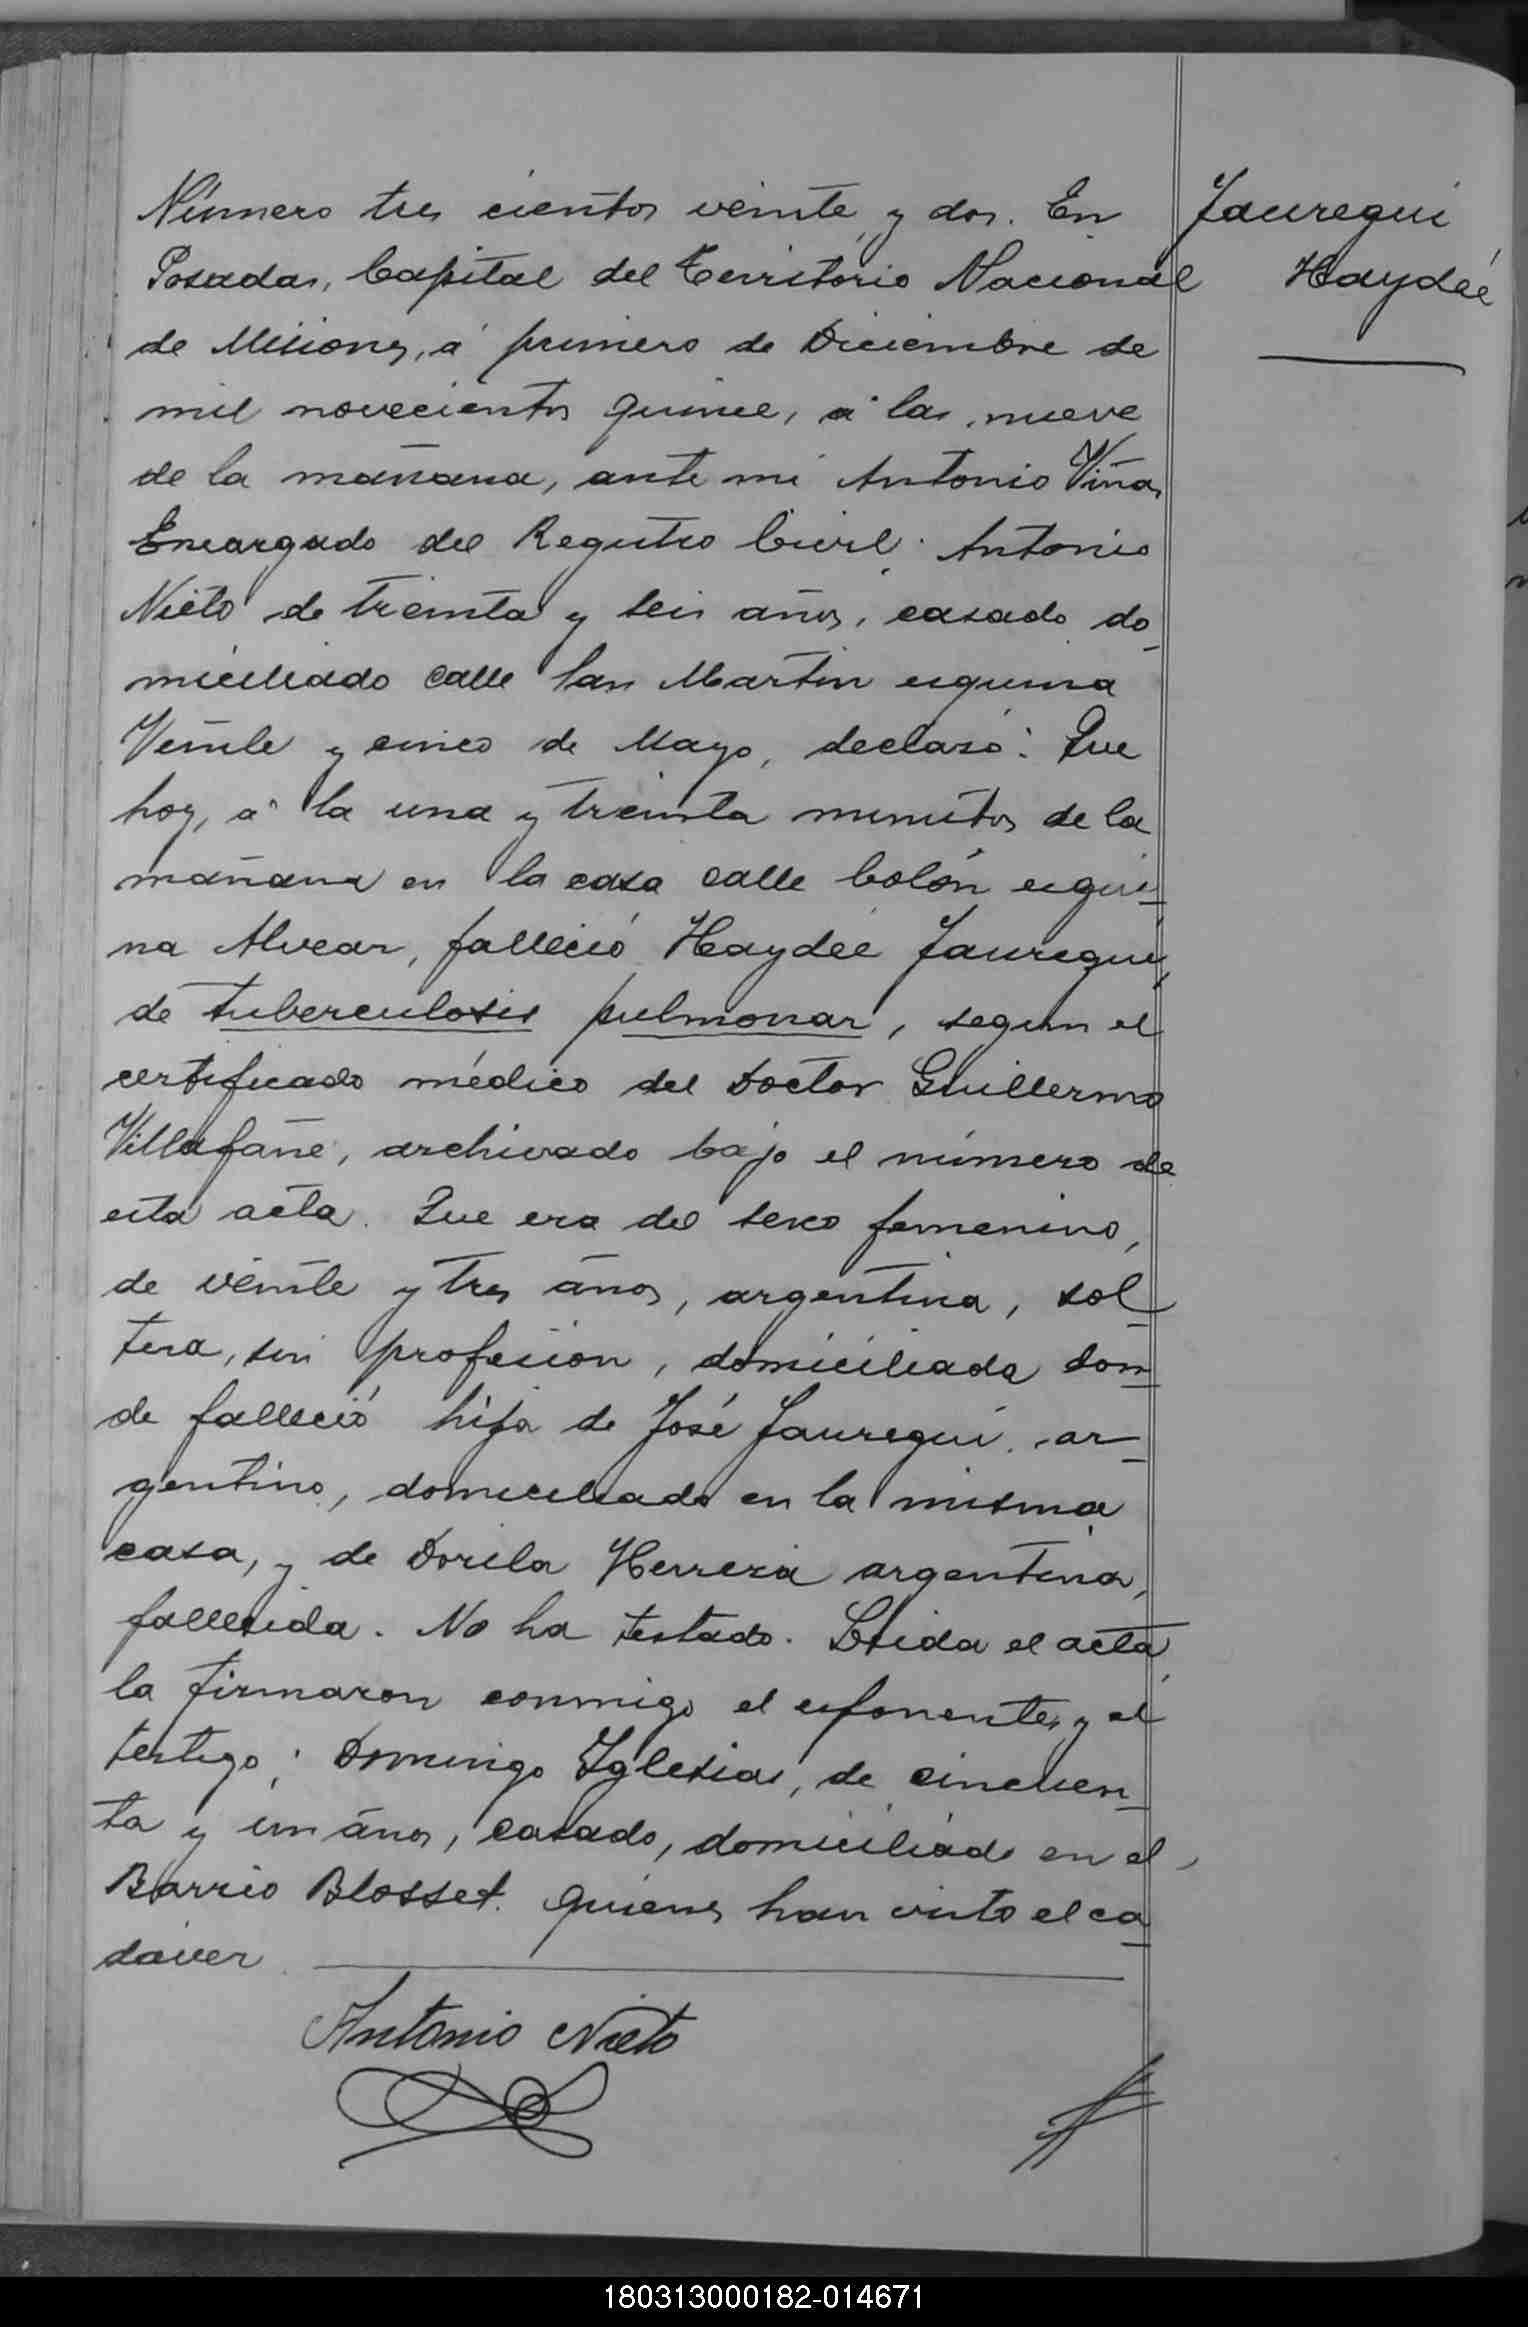 Número tres cientos veinte y dos. En
Posadas, Capital del Territorio Nacional
de Misiones, á primero de Diciembre de
mil novecientos quince, á las nueve
de la mañana, ante mi Antonio Viñas
Encargado del Registro Civil: Antonio
Nieto de treinta y seis años, casado do-
miciliado calle San Martin esquina
Veinte y cinco de Mayo, declaró: Que
hoy, á la una y treinta minutos de la
mañana en la casa calle Colón esqui-
na Alvear, falleció Haydée Jauregui,
de tuberculosis pulmonar, segun el
certificado médico del Doctor Guillermo
Villafañe, archivado bajo el número de
esta acta. Que era del sexo femenino,
de veinte y tres años, argentina, sol-
tera, sin profesion, domiciliada don-
de falleció hija de José Jauregui, ar-
gentino, domiciliado en la misma
casa, y de Dorila Herrera argentina,
fallecida. No ha testado. Leida el acta
la firmaron conmigo el esponente, y el
testigo: Domingo Iglesias, de cincuen-
ta y un años, casado, domiciliado en el
Barrio Blosset. quienes han visto el ca-
dáver
Jauregui
Haydée
Antonio Nieto
180313000182-014671